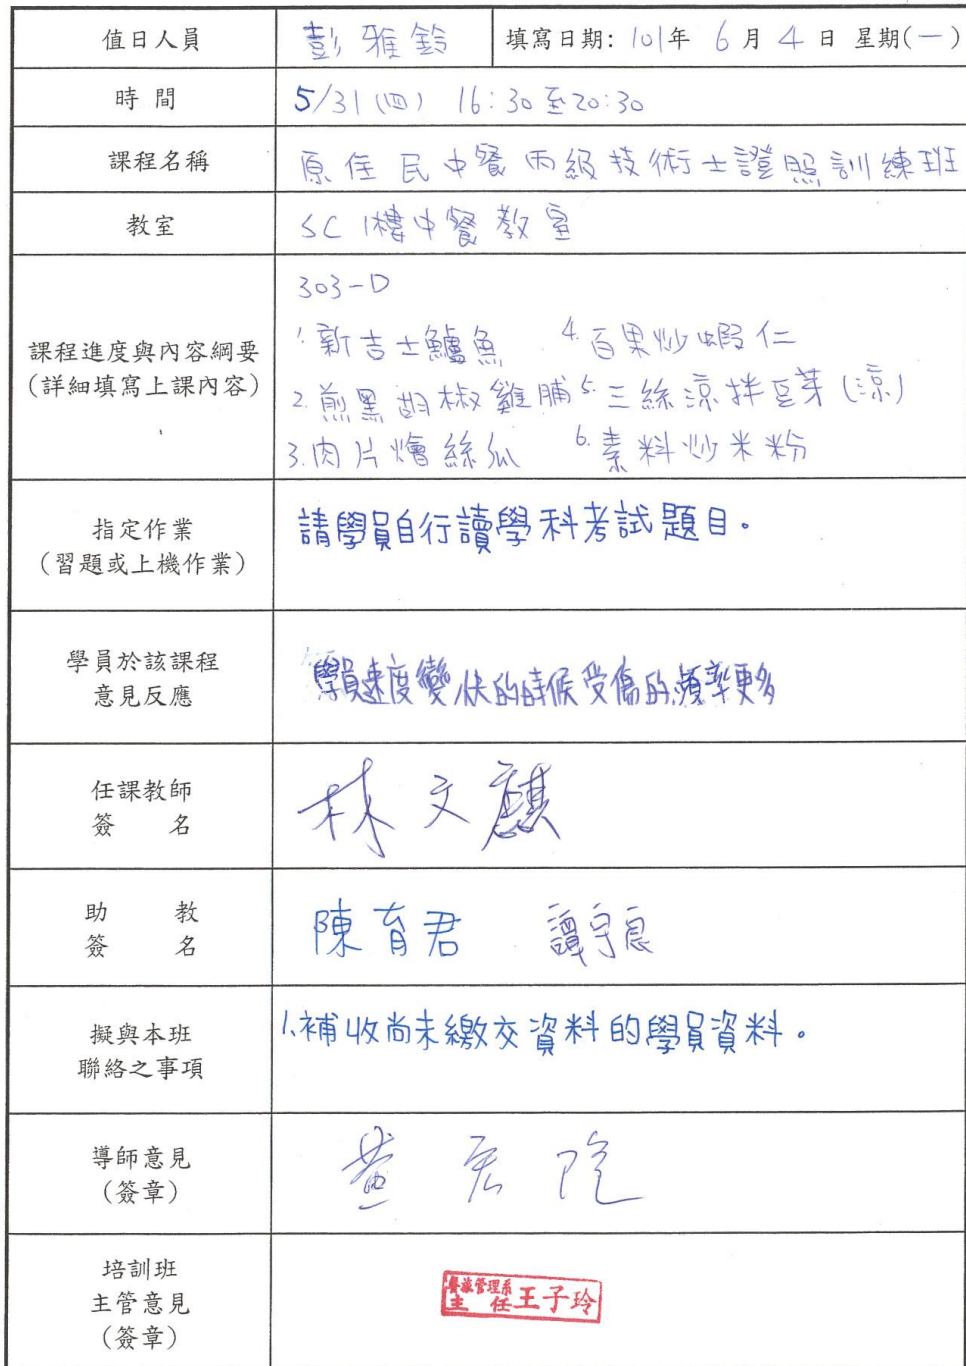 值日人員 彭雅鈴 填寫日期: 101年 6月 4日 星期(一)
時 間 5/31(四) 16:30至20:30
課程名稱 原住民中餐丙級技術士證照訓練班
教室 SC 1樓中餐教室
課程進度與內容綱要
(詳細填寫上課內容)
303-D
1.新吉士鱸魚 4.百果炒蝦仁
2.煎黑胡椒雞脯 5.三絲涼拌豆芽(涼)
3.肉片燴絲瓜 6.素料炒米粉
指定作業
(習題或上機作業)
請學員自行讀學科考試題目。
學員於該課程
意見反應
學員速度變快的時候受傷的頻率更多
任課教師
簽 名
林文麒
助 教
簽 名
陳育君 譚守良
擬與本班
聯絡之事項
1.補收尚未繳交資料的學員資料。
導師意見
(簽章)
黃宏隆
培訓班
主管意見
(簽章)
餐旅管理系
主任 王子玲